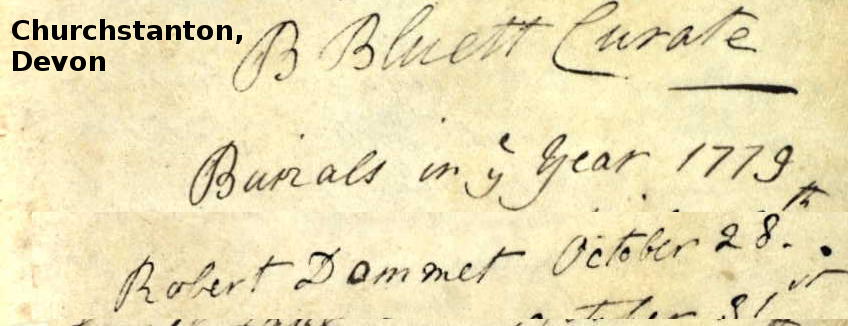 Churchstanton,
Devon
B Bluett Curate
Burials in yͤ Year 1779
Robert Dommet October 28.th
October 31st